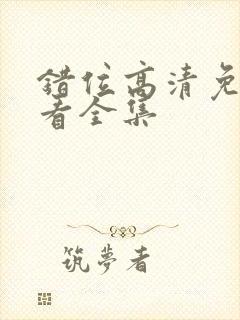 错位高清免
看全集
筑梦者